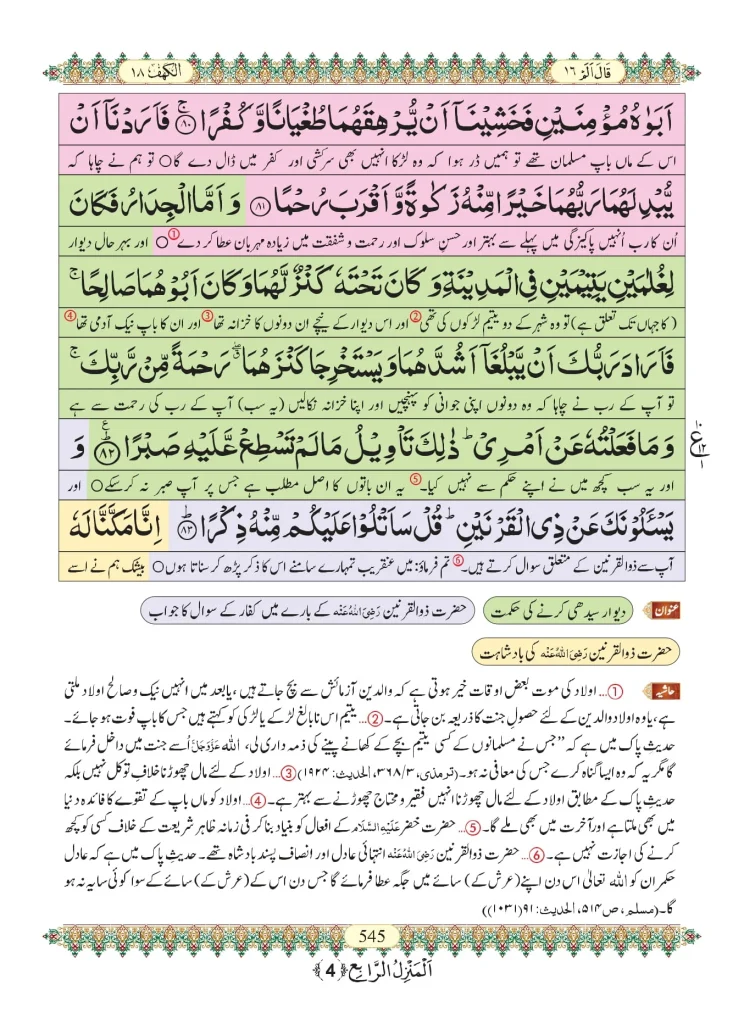 قَالَ اَلَمْ ١٦
الكهف ١٨
اَبَوٰهُ مُؤْمِنَيْنِ فَخَشِيْنَاۤ اَنْ يُّرْهِقَهُمَا طُغْيَانًا وَّ كُفْرًاۚ۝۸۰ فَاَرَدْنَاۤ اَنْ
اس کے ماں باپ مسلمان تھے تو ہمیں ڈر ہوا کہ وہ لڑکا انہیں بھی سرکشی اور کفر میں ڈال دے گا○ تو ہم نے چاہا کہ
يُّبْدِلَهُمَا رَبُّهُمَا خَيْرًا مِّنْهُ زَكٰوةً وَّ اَقْرَبَ رُحْمًا۝۸۱ وَ اَمَّا الْجِدَارُ فَكَانَ
اُن کا رب اُنہیں پاکیزگی میں پہلے سے بہتر اور حسنِ سلوک اور رحمت و شفقت میں زیادہ مہربان عطا کر دے①○ اور بہر حال دیوار
لِغُلٰمَيْنِ يَتِيْمَيْنِ فِي الْمَدِيْنَةِ وَ كَانَ تَحْتَهٗ كَنْزٌ لَّهُمَا وَ كَانَ اَبُوْهُمَا صَالِحًاۚ
(کا جہاں تک تعلق ہے) تو وہ شہر کے دو یتیم لڑکوں کی تھی② اور اس دیوار کے نیچے ان دونوں کا خزانہ تھا③ اور ان کا باپ نیک آدمی تھا④
فَاَرَادَ رَبُّكَ اَنْ يَّبْلُغَاۤ اَشُدَّهُمَا وَ يَسْتَخْرِجَا كَنْزَهُمَا ۖۗ رَحْمَةً مِّنْ رَّبِّكَۚ
تو آپ کے رب نے چاہا کہ وہ دونوں اپنی جوانی کو پہنچیں اور اپنا خزانہ نکالیں (یہ سب) آپ کے رب کی رحمت سے ہے
وَ مَا فَعَلْتُهٗ عَنْ اَمْرِيْؕ ذٰلِكَ تَاْوِيْلُ مَا لَمْ تَسْطِعْ عَّلَيْهِ صَبْرًا۝۸۲ وَ
اور یہ سب کچھ میں نے اپنے حکم سے نہیں کیا۔⑤ یہ ان باتوں کا اصل مطلب ہے جس پر آپ صبر نہ کرسکے○ اور
يَسْـَٔلُوْنَكَ عَنْ ذِي الْقَرْنَيْنِؕ قُلْ سَاَتْلُوْا عَلَيْكُمْ مِّنْهُ ذِكْرًاؕ۝۸۳ اِنَّا مَكَّنَّا لَهٗ
آپ سے ذوالقرنین کے متعلق سوال کرتے ہیں۔⑥ تم فرماؤ: میں عنقریب تمہارے سامنے اس کا ذکر پڑھ کر سناتا ہوں○ بیشک ہم نے اسے
عنوان دیوار سیدھی کرنے کی حکمت حضرت ذوالقرنین رَضِیَ اللہُ عَنْہ کے بارے میں کفار کے سوال کا جواب
حضرت ذوالقرنین رَضِیَ اللہُ عَنْہ کی بادشاہت
حاشیہ ①... اولاد کی موت بعض اوقات خیر ہوتی ہے کہ والدین آزمائش سے بچ جاتے ہیں، یا بعد میں انہیں نیک و صالح اولاد ملتی
ہے، یا وہ اولاد والدین کے لئے حصولِ جنت کا ذریعہ بن جاتی ہے۔ ②... یتیم اس نابالغ لڑکے یا لڑکی کو کہتے ہیں جس کا باپ فوت ہو جائے۔
حدیثِ پاک میں ہے کہ ”جس نے مسلمانوں کے کسی یتیم بچے کے کھانے پینے کی ذمہ داری لی، اللہ عَزَّوَجَلَّ اُسے جنت میں داخل فرمائے
گا مگر یہ کہ وہ ایسا گناہ کرے جس کی معافی نہ ہو۔ (ترمذی، ۳/۳۶۸، الحدیث: ۱۹۲۴) ③... اولاد کے لئے مال چھوڑنا خلافِ توکل نہیں بلکہ
حدیثِ پاک کے مطابق اولاد کے لئے مال چھوڑنا انہیں فقیر و محتاج چھوڑنے سے بہتر ہے۔ ④... اولاد کو ماں باپ کے تقوے کا فائدہ دنیا
میں بھی ملتا ہے اور آخرت میں بھی ملے گا۔ ⑤... حضرت خضر عَلَیْہِ السَّلَام کے افعال کو بنیاد بنا کر فی زمانہ ظاہر شریعت کے خلاف کسی کو کچھ
کرنے کی اجازت نہیں ہے۔ ⑥... حضرت ذوالقرنین رَضِیَ اللہُ عَنْہ انتہائی عادل اور انصاف پسند بادشاہ تھے۔ حدیثِ پاک میں ہے کہ عادل
حکمران کو اللہ تعالیٰ اس دن اپنے (عرش کے) سائے میں جگہ عطا فرمائے گا جس دن اس کے (عرش کے) سائے کے سوا کوئی سایہ نہ ہو
گا۔ (مسلم، ص۵۱۴، الحدیث: ۹۱(۱۰۳۱))
545
اَلْمَنْزِلُ الرَّابِع ﴿4﴾